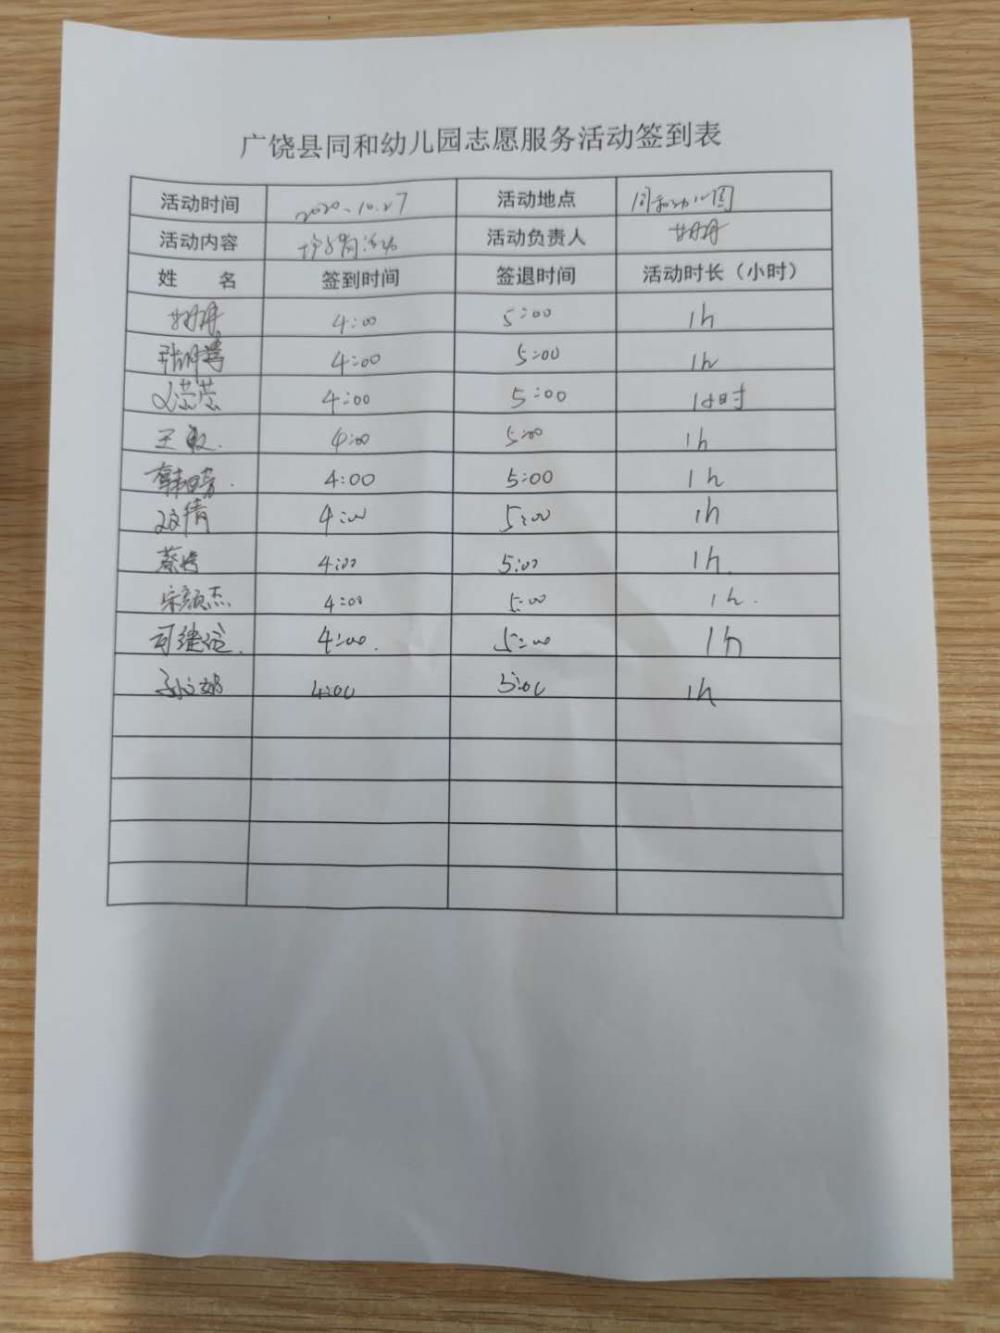 广饶县同和幼儿园志愿服务活动签到表
活动时间 2020.10.27 活动地点 同和幼儿园
活动内容 活动 活动负责人
姓 名 签到时间 签退时间 活动时长（小时）
4:00 5:00 1h
4:00 5:00 1h
4:00 5:00 1小时
王敏. 4:00 5:00 1h
4:00 5:00 1h
4:00 5:00 1h
4:00 5:00 1h.
宋颜杰 4:00 5:00 1h.
司继运. 4:00. 5:00 1h
孙文娟 4:00 5:00 1h